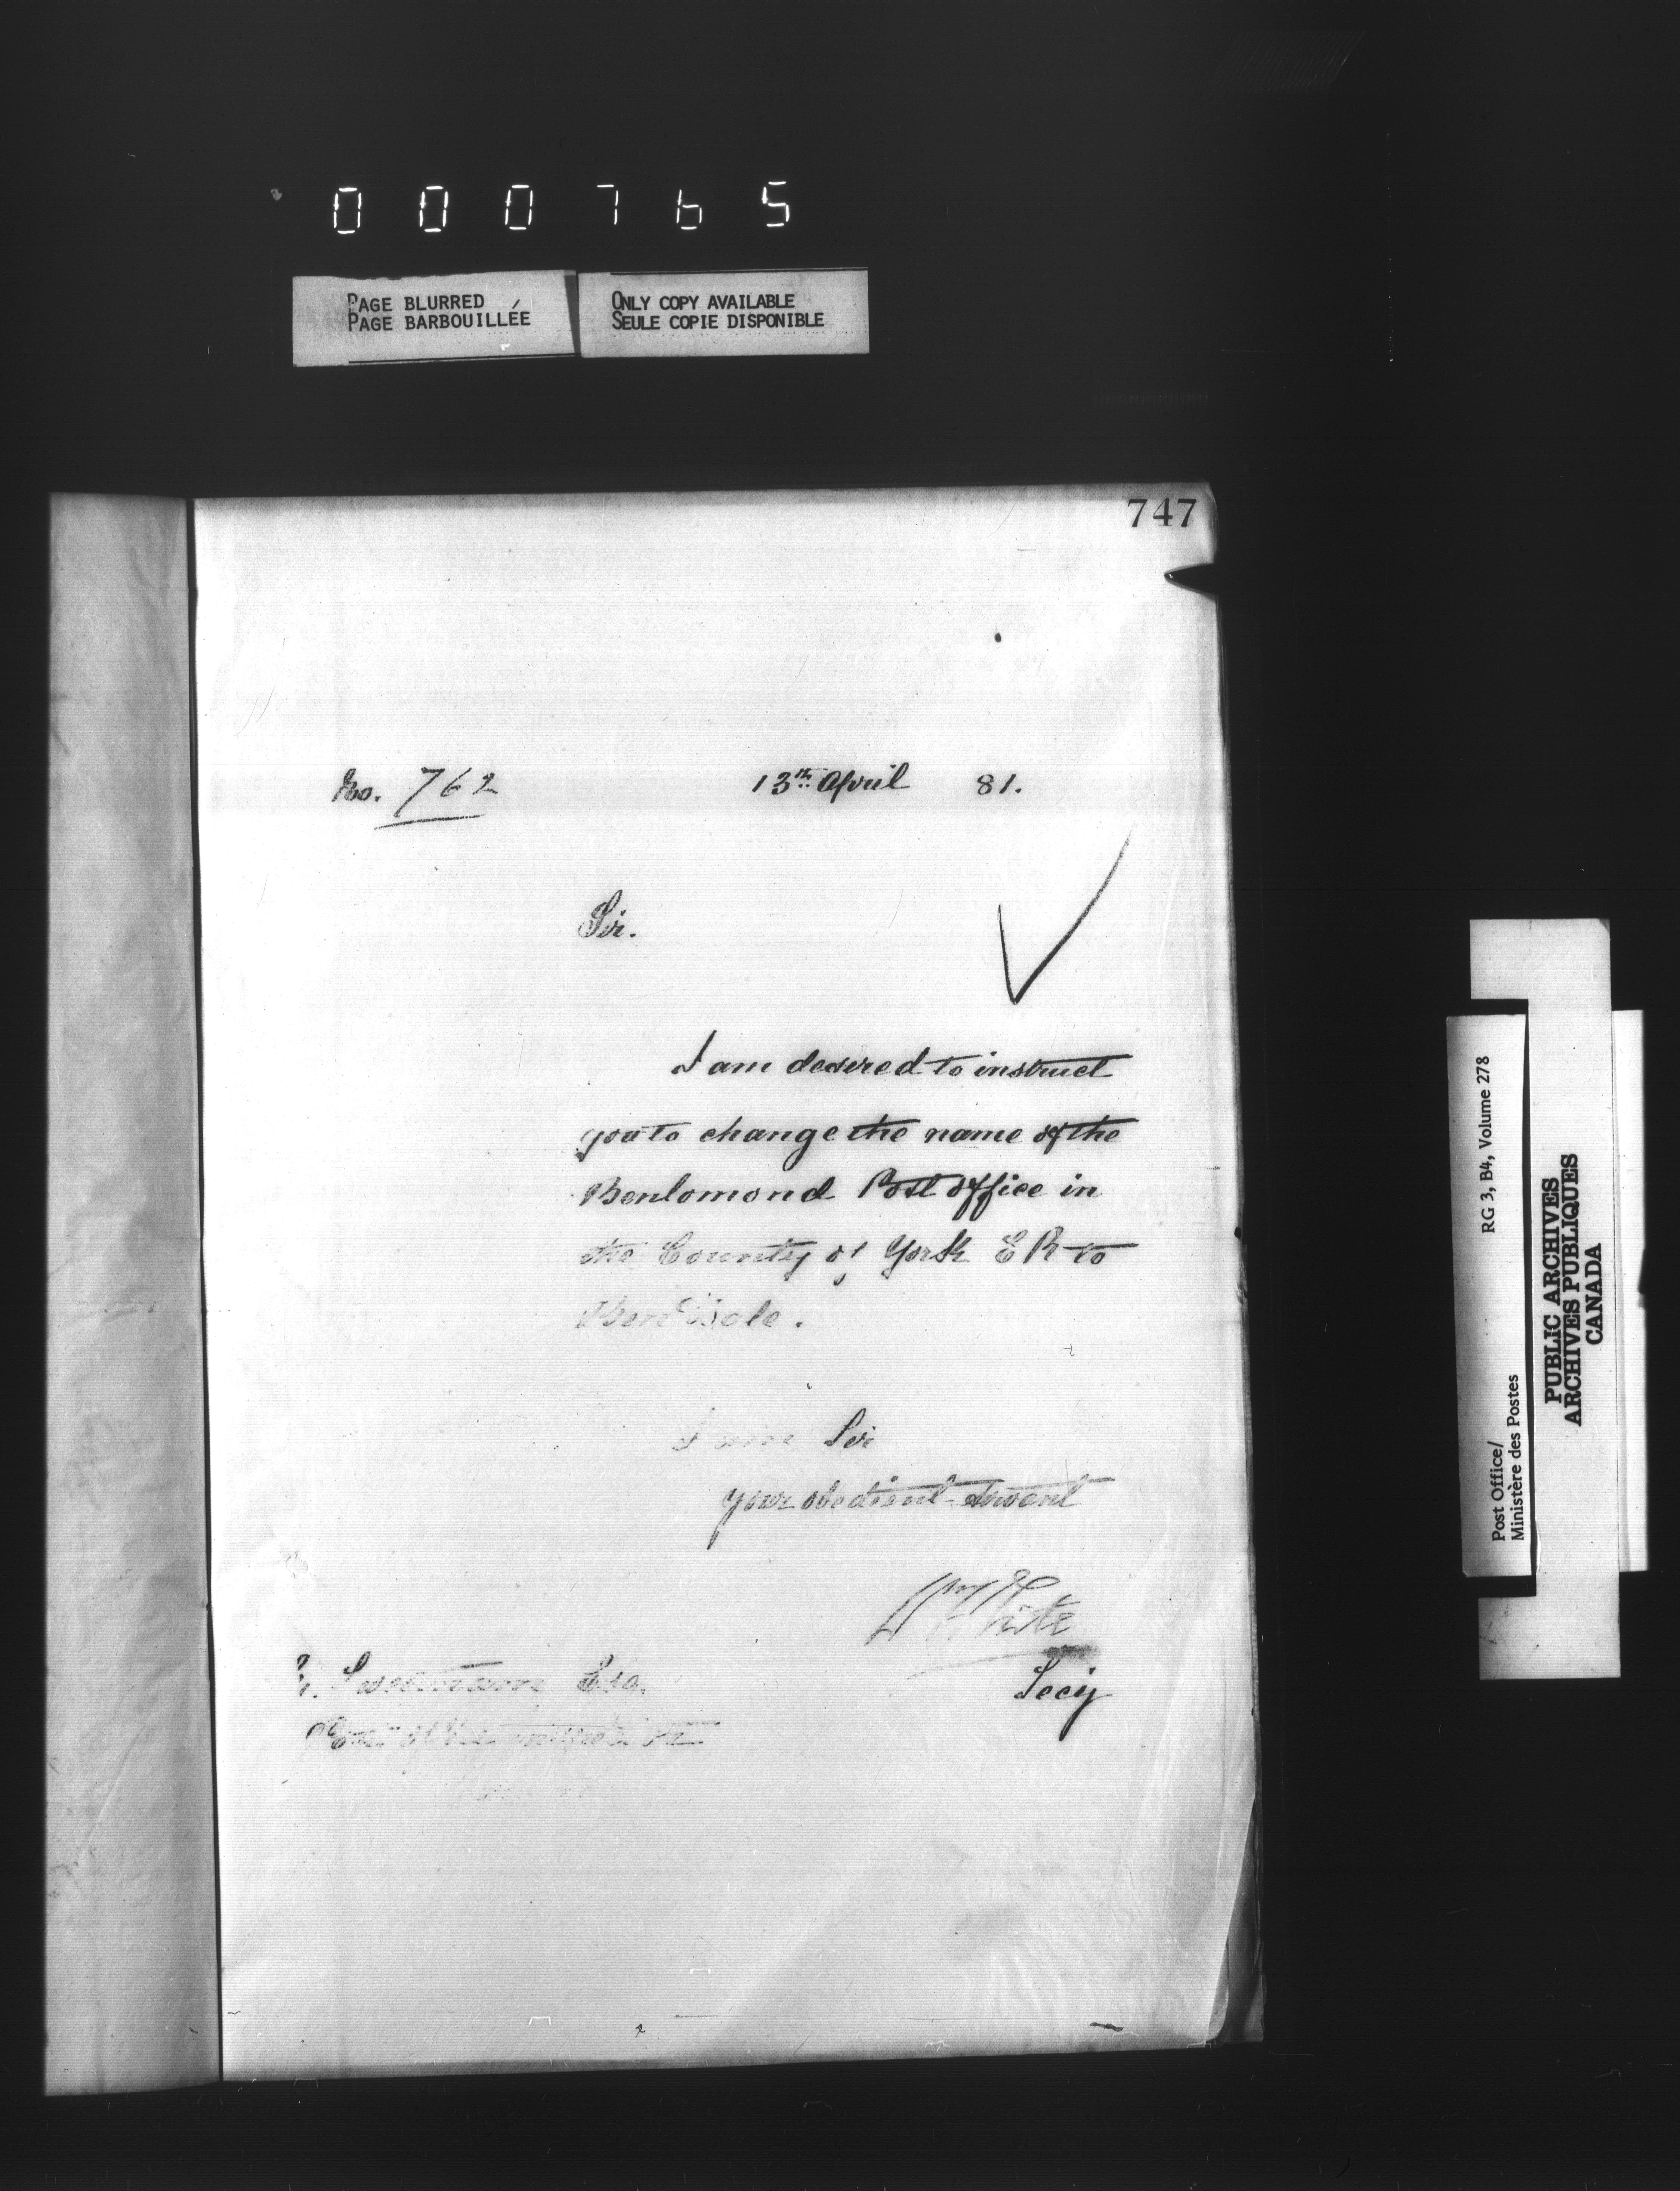 000765
PAGE BLURRED
PAGE BARBOUILLÉE
ONLY COPY AVAILABLE
SEULE COPIE DISPONIBLE
747
No. 762 13th April 81.
Sir.
I am desired to instruct
you to change the name of the
Benlomond Post Office in
the County of York E R to
I am Sir
your obedient servant
Wm White
Secy
Esq.
Post Office Inspector
Post Office/
Ministère des Postes
RG 3, B4, Volume 278
PUBLIC ARCHIVES
ARCHIVES PUBLIQUES
CANADA